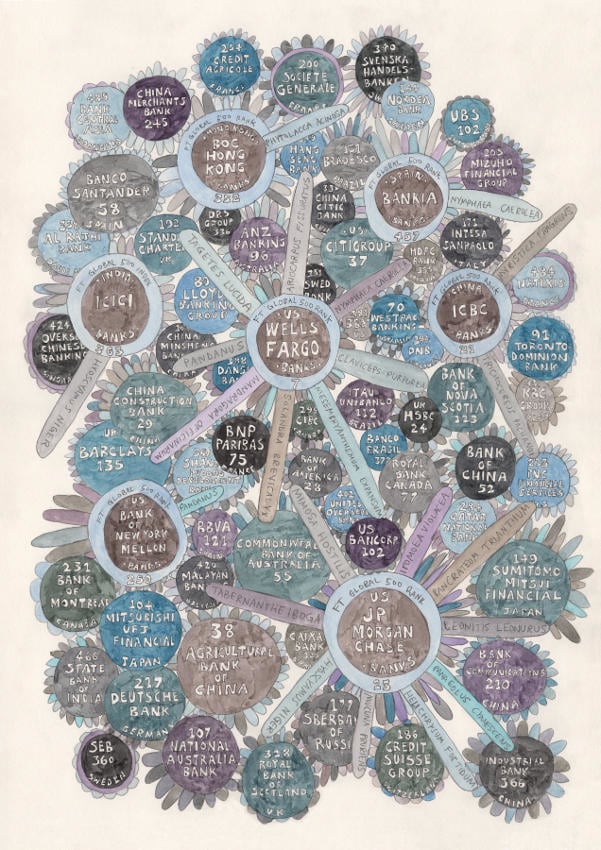 254
CREDIT
AGRICOLE
FRANCE
200
SOCIETE
GENERALE
FRANCE
SVENSKA
HANDELS-
BANKEN
CHINA
MERCHANTS
BANK
245
BANK
NORDEA
BANK
UBS
102
MIZUHO
FINANCIAL
GROUP
HONG KONG
BOC
HONG
KONG
BANKS
352
PHYTOLACCA ACINOSA
HANG
SENG
BANK
BRADESCO
BRAZIL
FT GLOBAL 500 RANK
SPAIN
BANKIA
BANKS
497
NYMPHAEA CAERULEA
BANCO
SANTANDER
58
SPAIN
AL RAJHI
BANK
192
STAND
CHARTE
UK
DBS
GROUP
336
CHINA
CITIC
BANK
ANZ
BANKING
96
AUSTRALIA
US
CITIGROUP
37
HDFC
BANK
INTESA
SANPAOLO
ITALY
MYRISTICA FRAGRANS
TAGETES LUCIDA
ARIOCARPUS FISSURATUS
NYMPHAEA CAERULEA
NATIXIS
FT GLOBAL 500 RANK
INDIA
ICICI
BANKS
80
LLOYD
BANKING
GROUP
SWED
BANK
FT GLOBAL 500 RANK
US
WELLS
FARGO
BANKS
7
70
WESTPAC
BANKING
DNB
FT GLOBAL 500 RANK
CHINA
ICBC
BANKS
91
TORONTO
DOMINION
BANK
424
OVERSE
CHINESE
BANKING
CHINA
MINSHENG
BANK
PANDANUS
DANS
BANK
CLAVICEPS-PURPUREA
HYOSCYAMUS NIGER
CHINA
CONSTRUCTION
BANK
29
CHINA
MANDRAGORA OFFICINARUM
CIBC
ITAU
UNIBANCO
112
BRAZIL
UK
HSBC
24
BANK
OF NOVA
SCOTIA
KBC
GROUP
UK
BARCLAYS
135
BNP
PARIBAS
75
FRANCE
BANK OF
AMERICA
28
BANCO
BRASIL
ROYAL
BANK
CANADA
BANK
OF CHINA
52
MESEMBRYANTHEMUM EXPANSUM
PANDANUS
FT GLOBAL 500 RANK
US
BANK
OF
NEW YORK
MELLON
BANKS
BBVA
121
MIMOSA HOSTILIS
UNITED
OVERSE
BANK
US
BANCORP
102
IPOMOEA VIOLACEA
CATHAY
NATIONAL
PANCRATIUM TRIANTHUM
COMMONWEAL
BANK OF
AUSTRALIA
55
231
BANK
OF
MONTREAL
CANADA
420
MALAYAN
BAN
TABERNANTHE IBOGA
FT GLOBAL 500 RANK
US
JP
MORGAN
CHASE
BANKS
149
SUMITOMO
MITSUI
FINANCIAL
JAPAN
LEONITIS LEONURUS
104
MITSUBISHI
UFJ
FINANCIAL
JAPAN
38
AGRICULTURAL
BANK
OF
CHINA
CAIXA
BANK
BANK
OF
COMMUNICATIONS
210
CHINA
STATE
BANK
OF
INDIA
217
DEUTSCHE
BANK
GERMAN
HYOSCYAMUS NIGER
177
SBERBAN
OF
RUSSI
PANAEOLUS CYANESCENS
HELICHRYSUM FOETIDUM
SEB
360
SWEDEN
107
NATIONAL
AUSTRALIA
BANK
328
ROYAL
BANK
OF
SCOTLAND
UK
186
CREDIT
SUISSE
GROUP
SWITZERLAND
INDUSTRIAL
BANK
366
CHINA